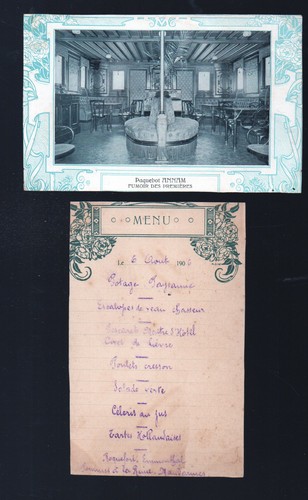 Paquebot ANNAM
FUMOIR DES PREMIÈRES
MENU
Le 5 Août 190
Potage Paysanne
Escalopes de veau chasseur
Maître d'Hôtel
Civet de lièvre
Poulets cresson
Salade verte
Céleris au jus
Tartes Hollandaises
Roquefort